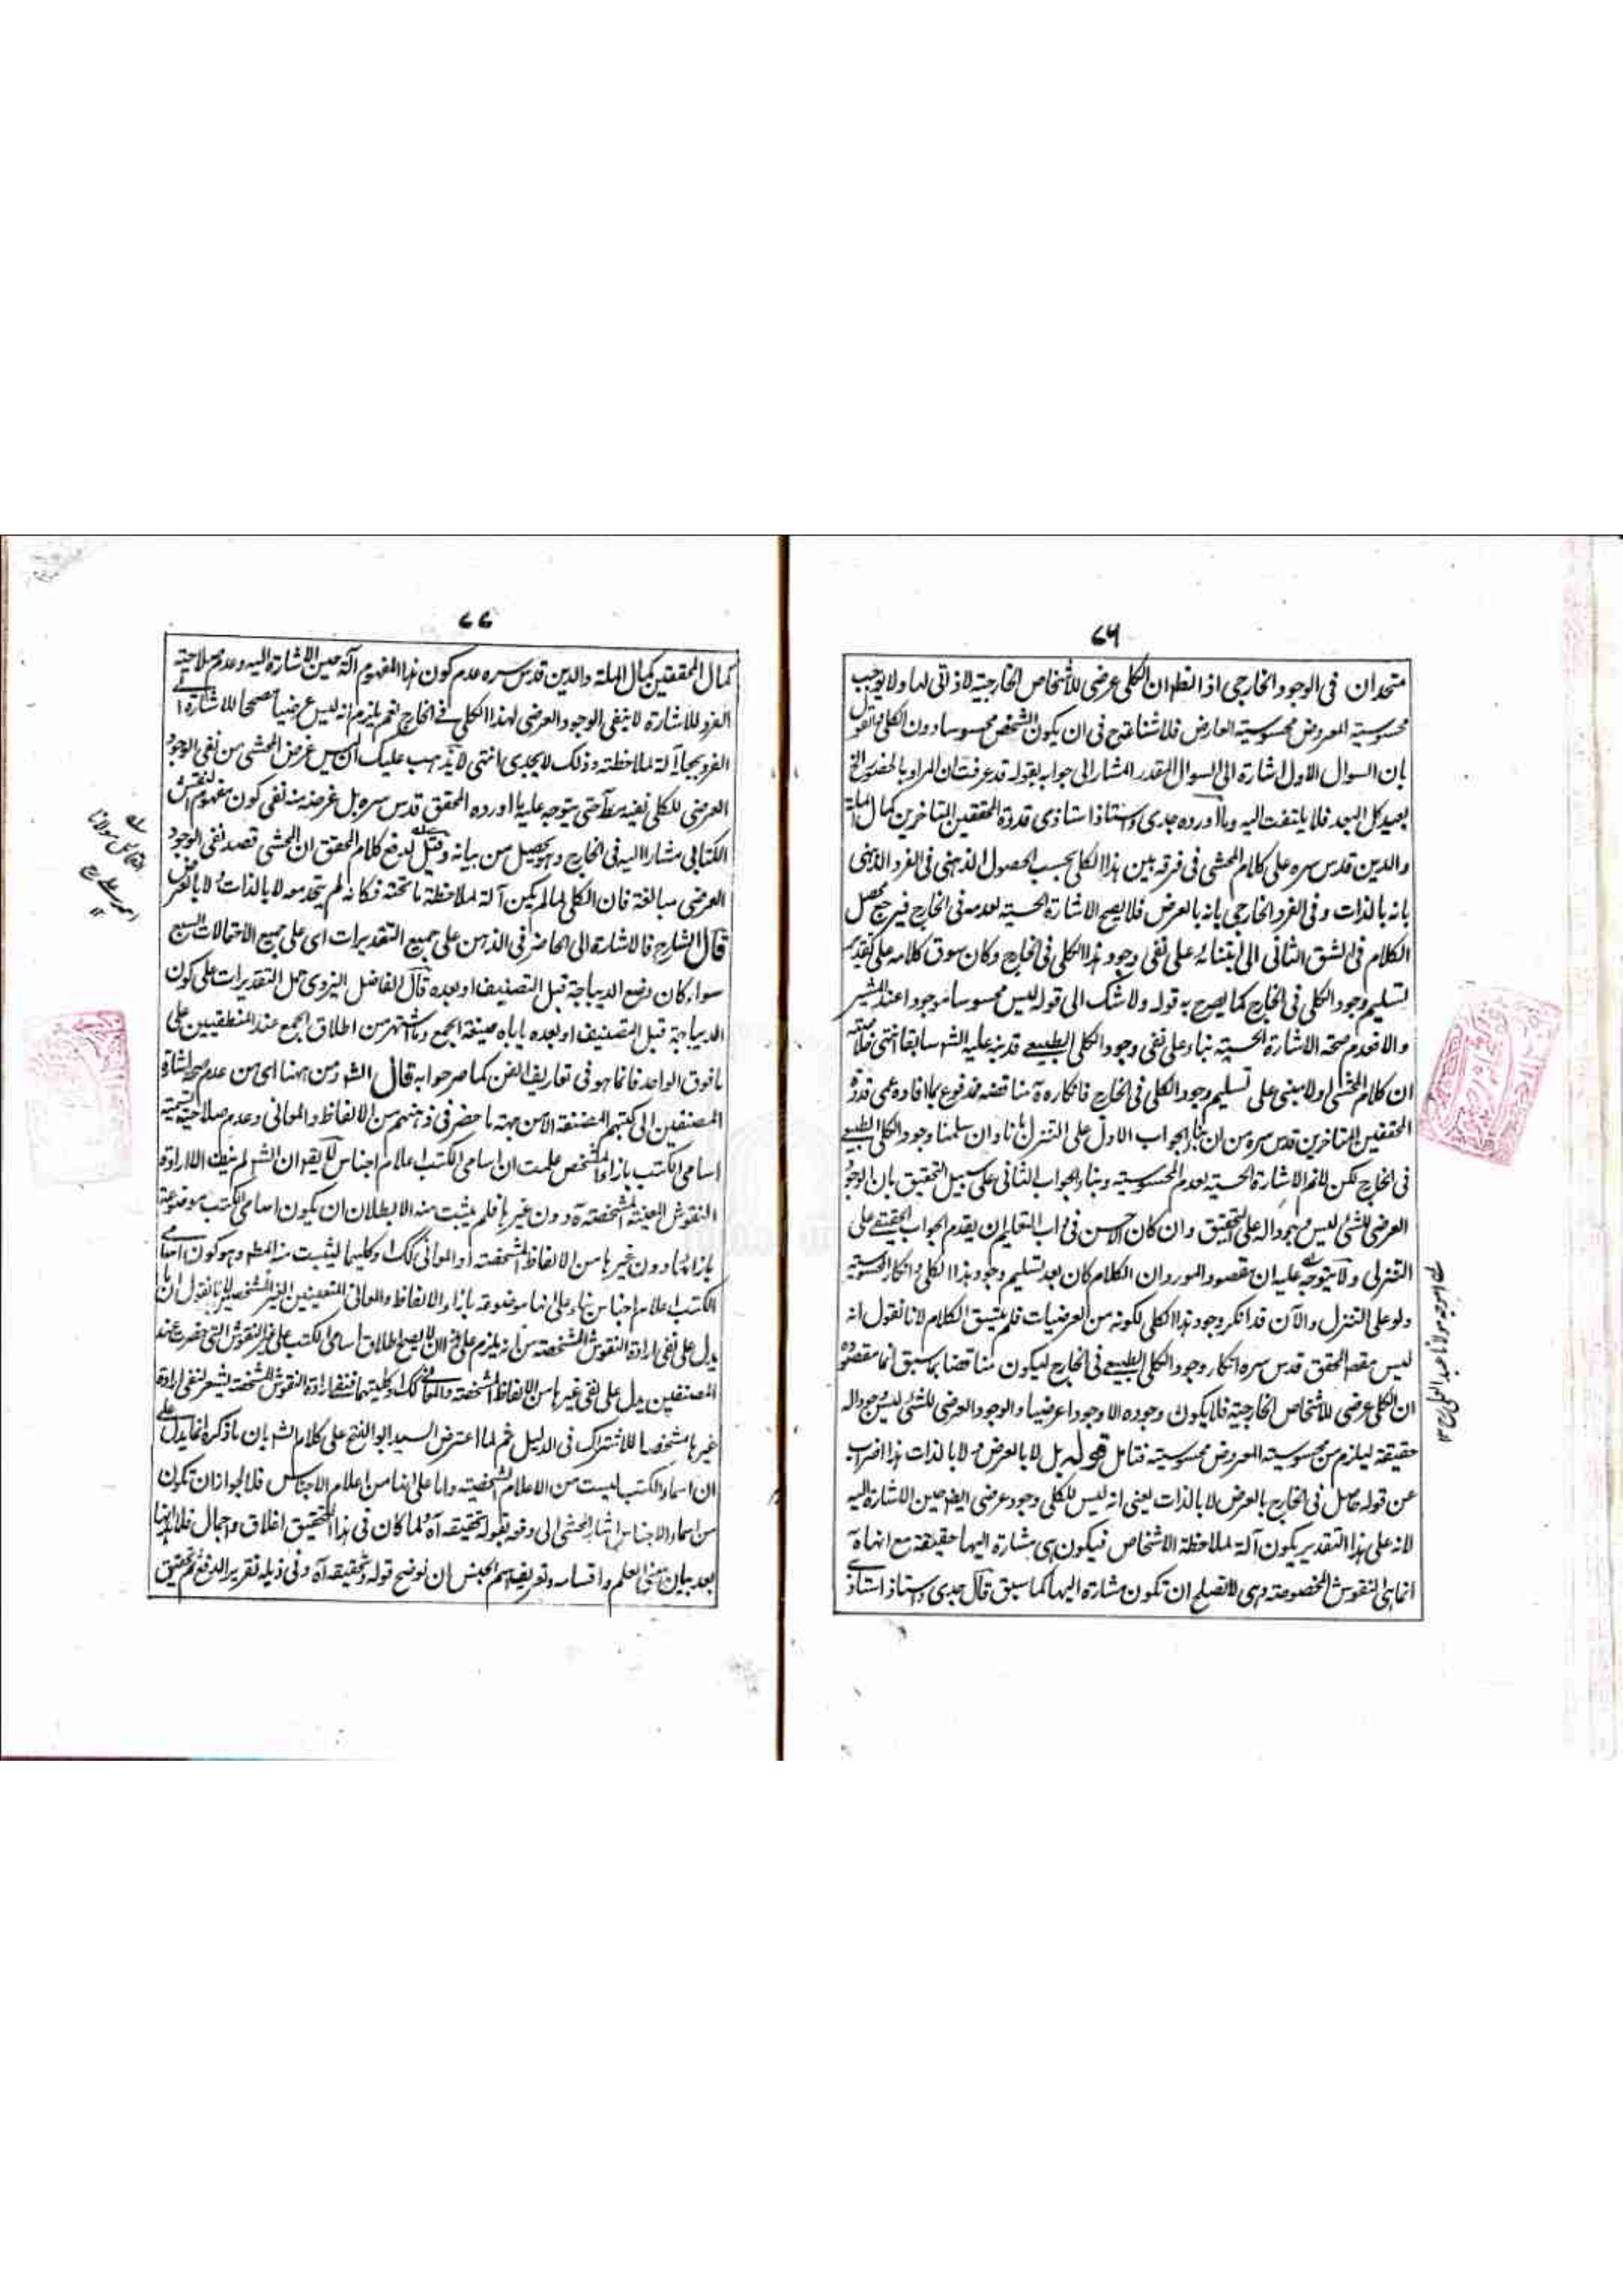 ٧٦
متحدان فی الوجود الخارجی اذ الظ ان الکلی عرضی للاشخاص الخارجیة لا ذاتی لها ولا یوجب
محسوسیة المعروض محسوسیة العارض فلا شناعة فی ان یکون الشخص محسوسا دون الکلی
بان السوال الاول اشارة الی السوال المقدر المشار الی جوابه بقوله قد عرفت ان المراد بالحضور الخ
بعید کل البعد فلا یلتفت الیه وما اورده جدی واستاذ استاذی قدوة المحققین المتاخرین کمال الملة
والدین قدس سره علی کلام المحشی فی فرقه بین هذا الکلی بحسب الحصول الذهنی فی الفرد الذهنی
بانه بالذات وفی الفرد الخارجی بانه بالعرض فلا یصح الاشارة الحسیة لعدمه فی الخارج فیرجع محصل
الکلام فی الشق الثانی الی ابتنائه علی نفی وجود هذا الکلی فی الخارج وکان سوق کلامه علی تقدیر
تسلیم وجود الکلی فی الخارج کما یصرح به قوله ولا شک الی قوله لیس محسوسا موجودا عند المشیر
والا فعدم صحة الاشارة الحسیة بناء علی نفی وجود الکلی الطبیعی قد نبه علیه الشه سابقا انتهی
ان کلام المحشی اولا مبنی علی تسلیم وجود الکلی فی الخارج فانکاره مناقضة فمدفوع بما افاده عمی قدوة
المحققین المتاخرین قدس سره من ان بناء الجواب الاول علی التنزل بانا وان سلمنا وجود الکلی الطبیعی
فی الخارج لکن لا نم الاشارة الحسیة لعدم المحسوسیة وبناء الجواب الثانی علی سبیل التحقیق بان الوجود
العرضی للشئ لیس بوجود له علی التحقیق وان کان الاحسن فی باب التعلیم ان یقدم الجواب الحقیقی علی
التنزلی ولا یتوجه علیه ان مقصود المورد ان الکلام کان بعد تسلیم وجود هذا الکلی وانکار المحسوسیة
ولو علی التنزل والآن قد انکر وجود هذا الکلی لکونه من العرضیات فلم یتسق الکلام لانا نقول انه
لیس مقصد المحقق قدس سره انکار وجود الکلی الطبیعی فی الخارج لیکون مناقضا بما سبق انما مقصوده
ان الکلی عرضی للاشخاص الخارجیة فلا یکون وجوده الا وجودا عرضیا والوجود العرضی للشئ لیس وجوداله
حقیقة لیلزم من محسوسیة المعروض محسوسیته فتامل قوله بل لا بالعرض ولا بالذات هذا اضراب
عن قوله حاصل فی الخارج بالعرض لا بالذات یعنی انه لیس للکلی وجود عرضی ایض حین الاشارة الیه
لانه علی هذا التقدیر یکون آلة لملاحظة الاشخاص فیکون هی مشارة الیها حقیقة مع انها
انما هی النقوش المخصوصة وهی لا تصلح ان تکون مشارة الیها کما سبق قال جدی واستاذ استاذی
٧٧
کمال المحققین کمال الملة والدین قدس سره عدم کون هذا المفهوم آلة حین الاشارة الیه وعدم صلاحیة
الفرد للاشارة لا ینفی الوجود العرضی لهذا الکلی فی الخارج نعم یلزم انه لیس عرضیا مصححا للاشارة الی
الفرد بجعله آلة لملاحظته وذلک لا یجدی انتهی لا یذهب علیک ان لیس غرض المحشی من نفی الوجود
العرضی للکلی نفیه مط حتی یتوجه علیه ما اورده المحقق قدس سره بل غرضه منه نفی کون مفهوم النقش
الکتابی مشارا الیه فی الخارج وهو یحصل من بیانه وقیل لدفع کلام المحقق ان المحشی قصد نفی الوجود
العرضی مبالغة فان الکلی لما لم یکن آلة لملاحظة ما تحته فکانه لم یتحد معه لا بالذات ولا بالعرض
قال الشارح فالاشارة الی الحاضر فی الذهن علی جمیع التقدیرات ای علی جمیع الاحتمالات السبع
سواء کان وضع الدیباجة قبل التصنیف او بعده قال الفاضل الیزدی حمل التقدیرات علی کون
الدیباجة قبل التصنیف او بعده یاباه صیغة الجمع وما اشتهر من اطلاق الجمع عند المنطقیین علی
ما فوق الواحد فانما هو فی تعاریف الفن کما صرحوا به قال الشه ومن ههنا ای من عدم صحة اشارة
المصنفین الی کتبهم المصنفة الا من جهة ما حضر فی ذهنهم من الالفاظ والمعانی وعدم صلاحیة التسمیة
اسامی الکتب بازاء المشخص علمت ان اسامی الکتب اعلام اجناس لا یقه ان الشه لم یبطل الا ارادة
النقوش المعینة المشخصة آه دون غیرها فلم یثبت منه الا بطلان ان یکون اسامی الکتب موضوعة
بازائها دون غیرها من الالفاظ المشخصة او المعانی کک او کلیهما لیثبت منه المط وهو کون اسامی
الکتب اعلام اجناس بناء علی انها موضوعة بازاء الالفاظ والمعانی المتعینین الغیر المشخصین لانا نقول ان ما
یدل علی نفی ارادة النقوش المشخصة من انه یلزم علی هذا ان لا یصح اطلاق اسامی الکتب علی غیر النقوش التی حضرت عند
المصنفین یدل علی نفی غیرها من الالفاظ المشخصة والمعانی کک او کلیتهما فنفی ارادة النقوش المشخصة یشعر لنفی ارادة
غیرها مشخصا للاشتراک فی الدلیل ثم لما اعترض السید ابو الفتح علی کلام الشه بان ما ذکره انما یدل علی
ان اسماء الکتب لیست من الاعلام الشخصیة واما علی انها من اعلام الاجناس فلا لجواز ان تکون
من اسماء الاجناس اشار المحشی الی دفعه بقوله تحقیقه آه ولما کان فی هذا التحقیق اغلاق واجمال فلا بد لنا
بعد بیان معنی العلم واقسامه وتعریف اسم الجنس ان نوضح قوله وتحقیقه آه وفی ذیله تقریر الدفع ثم تحقیق